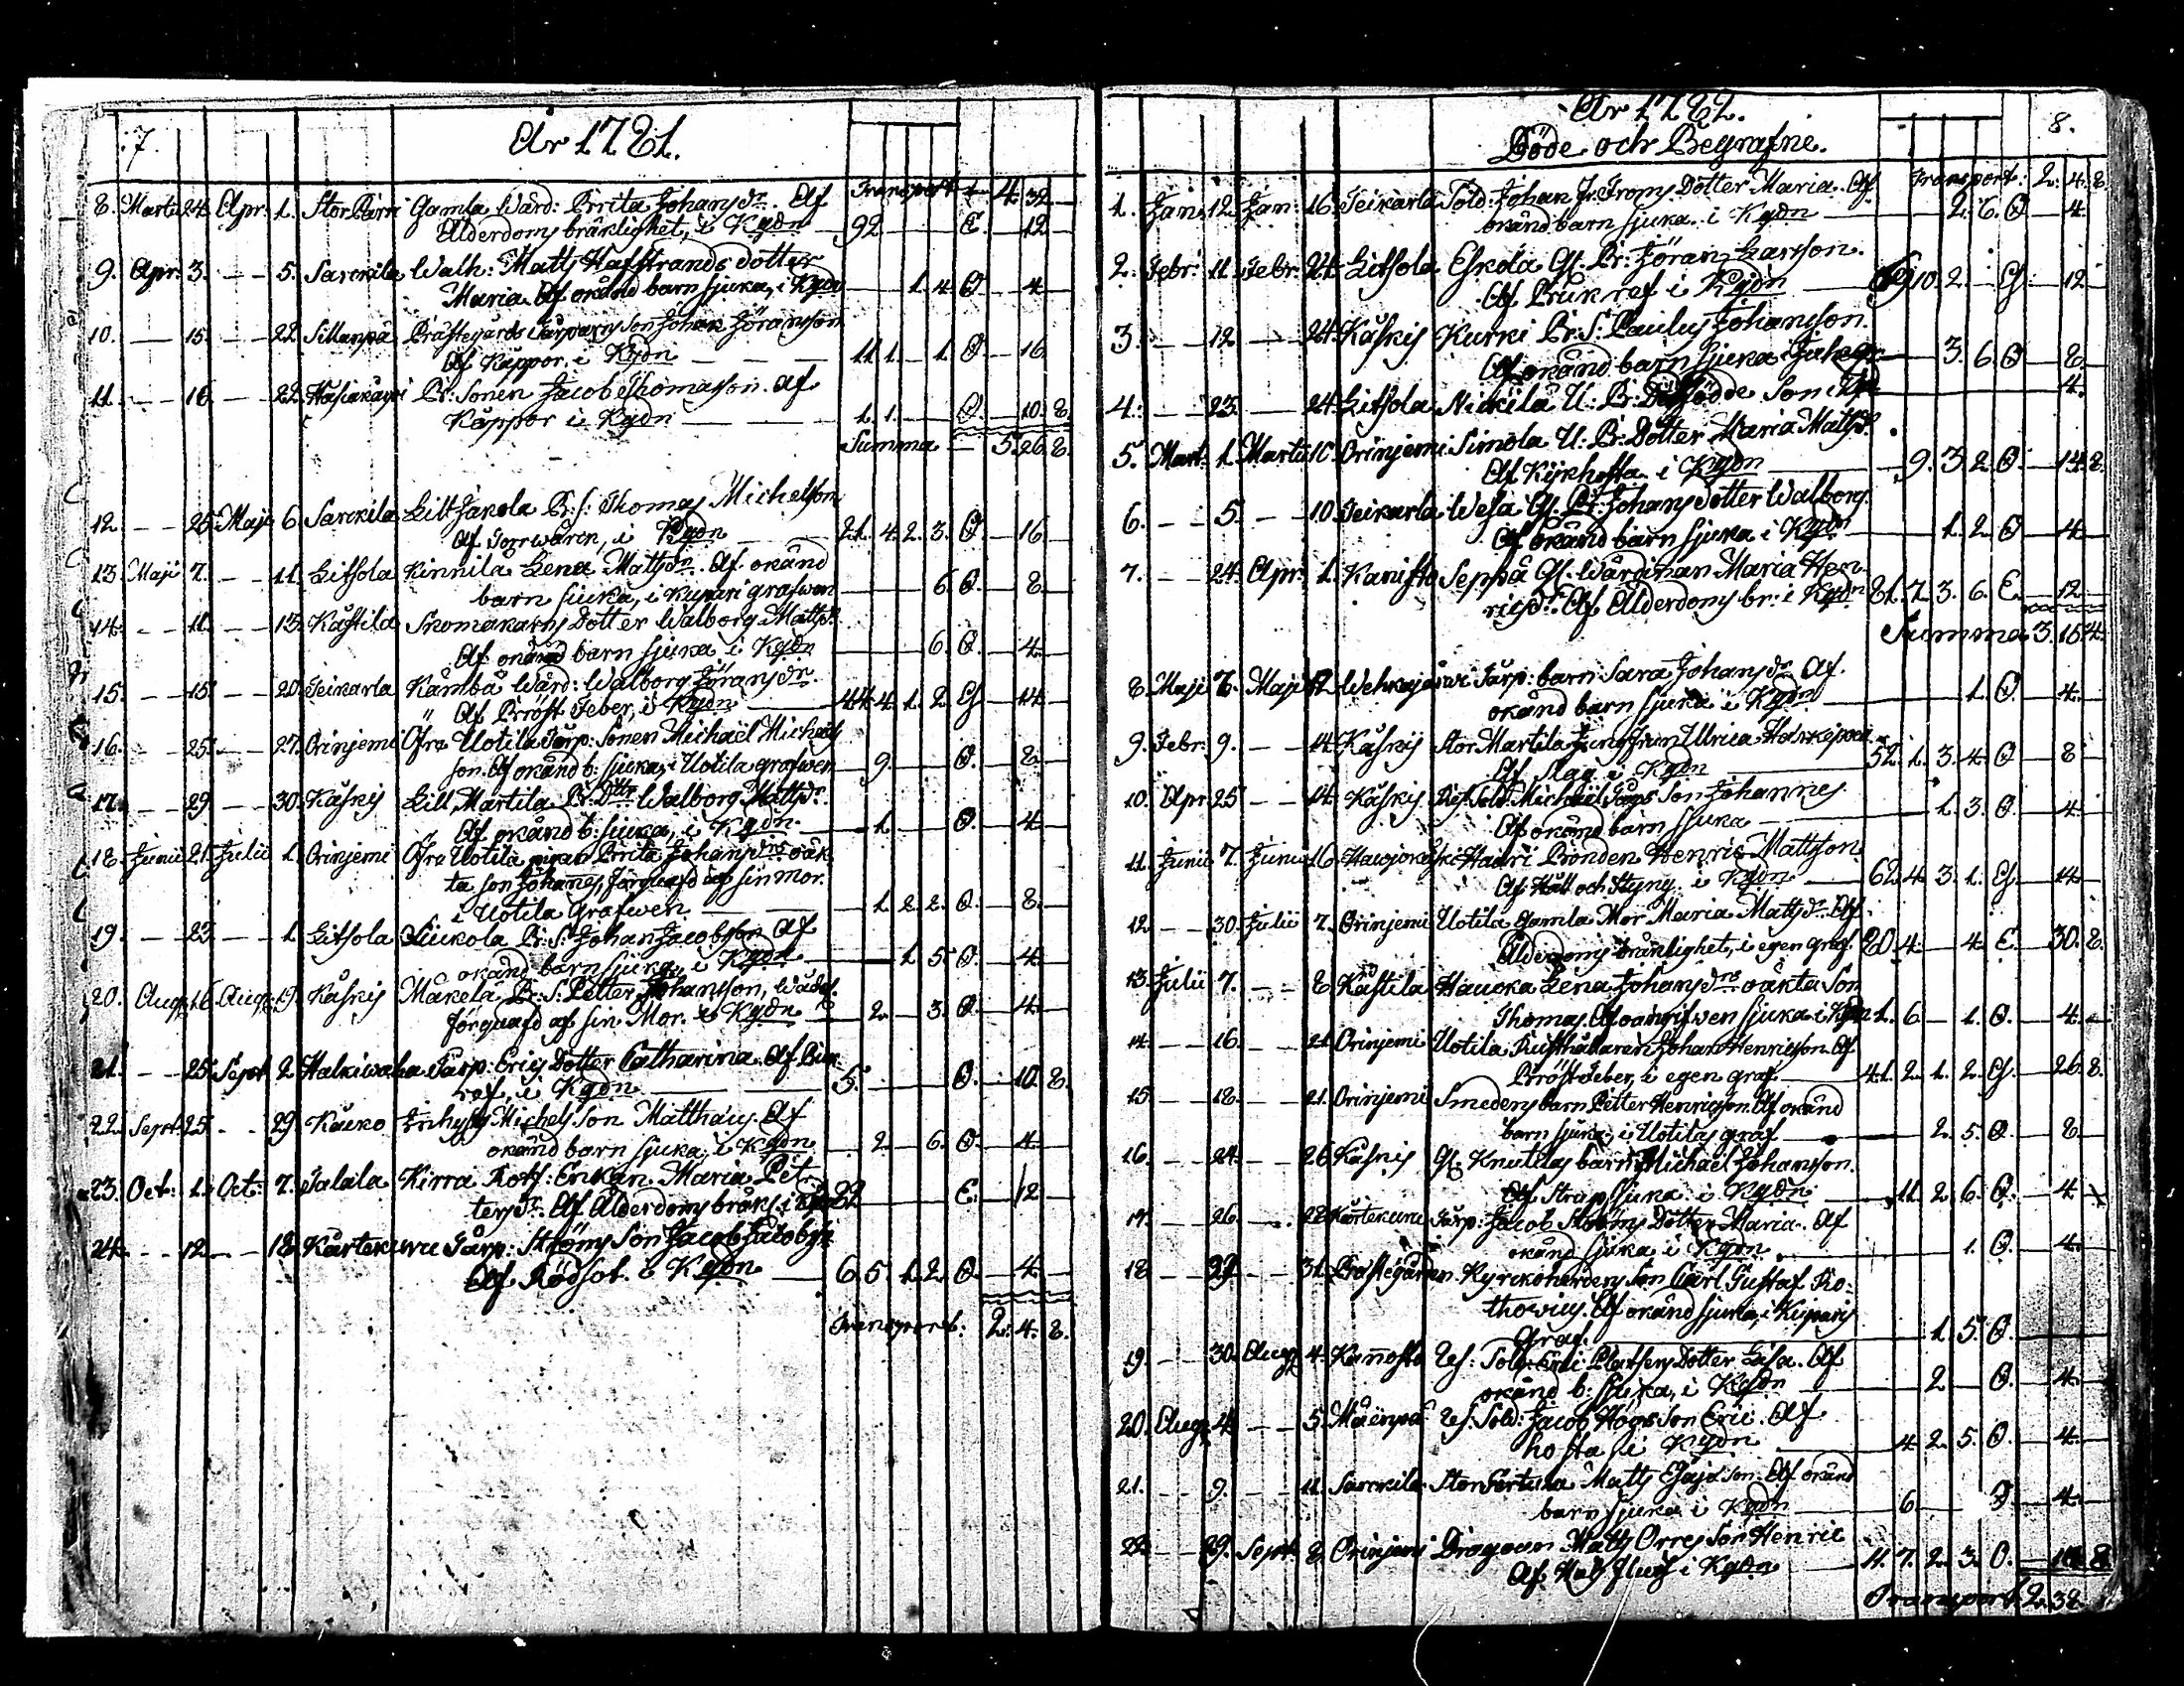 7.
År 1781.
Transport 1 4 32
8. Martii 24 Apr: 1. StorPärri Gamla Wärd: Brita Johansdr. Af
Ålderdoms bräklighet, i Kgdn 92 E. 12
9. Apr: 3. 5. Sarckila Walh: Matts Hafstrands dotter
Maria. Af okänd barn sjuka, i Kgdn 1 4 O 4
10. 15. 22. Sillanpä Prästegårds Torparns Son Johan Jöransson
Af Kåppor i Kgdn 11 1. 1. O. 16
11. 16 22. Br. Sonen Jacob Thomasson. Af
Kåppor i Kgdn 1. 1. O. 10. 8
Summa 5. 26. 8.
12 25 Maji 6. Sarckila Lill Jakola B: S: Thomas Michelson
Af Torrwärck, i Kgdn 21. 4. 2. 3. O. 16
13. Maji 7. 11. Leitsola Kinnila Lena Mattsdr. Af okänd
barn siuka, i Kupari grafwen 6 O. 8
14. 11. 13. Kåstila Skomakarns Dotter Walborg Mattsdr
Af okänd barn sjuka i Kgdn 6. O. 4
15. 15. 20. Teikarla Kämbä Wärd: Walborg Jöransdr.
Af Bröst feber, i Kgdn 44 4 1. 2 G 14
16. 25. 27. Orinjemi Öfra Uotila Torp: Sonen Michaël Michels
son. Af okänd b: sjuka, i Uotila grafwen 9. O. 8
17. 29 30. Kåskis Lill Martila B: Dttr Walborg Mattsdr.
Af okänd b: siuka, i Kgdn 1 O. 4
18. Junii 21. Julii 1. Orinjemi Öfra Uotila pigan Brita Johansdrs oäk
ta son Johanes, förquafd af sin mor.
i Uotila Grafwen 1 2. 2. O. 8.
19. 23 1. Leitsola Siukola B: S: Johan Jacobsson Af
okänd barn sjuka, i Kgdn 1 5 O. 4
20. Aug: 16 Aug: 19. Kåskis Mäkelä B: S: Petter Johansson, wåda
förquafd af sin Mor. i Kgdn 2 3. O. 4
21. 25 Sept. 2 Halkiwaha Torp: Erics Dotter Catharina. Af Buk
ref, i Kgdn 5. O. 10. 8.
22. Sept. 25 29. Kåuko Inhyss Michels Son Matthäus. Af
okänd barn sjuka, i Kgdn 2 6. O. 4
23. Oct: 1. Oct: 7. Salala Kirra Rotf: Enkan Maria Pet
tersdr. Af Ålderdoms bräkl: i Kgdn 82 E. 12
24. 12 18. Kårtekurcu Torp: Ströms Son Jacob Jacobss:
Af Rödsot i Kgdn 6 5 1. 2 O. 4
Transport. 2. 4. 8.
År 1782.
Döde och Begrafne.
8.
Transport: 2. 4. 8
1. Jan: 12 Jan: 16. Teikarla Sold: Johan Fr. Froms Dotter Maria. Af
okänd barn sjuka. i Kgdn 2. 6. O 4
2. Febr: 11. Febr: 24. Leitsola Eskola Gl: B: Jöran Larsson.
Af Buk ref i Kgdn 69 10. 2. G 12
3. 12 24. Kåskis Kurki B: S: Paulus Johansson.
Af okänd barn sjuka i 3. 6. O 8
4. 23 24. Leitsola Nickilä U: B: Dödfödde Son i 4.
5. Mart. 1. Martii 10. Orinjemi Simola U: B: Dotter Maria Mattsdr
Af Kikhosta i Kgdn 9. 3. 2. O. 14. 8.
6. 5. 10. Teikarla Wesa Gl: B: Johans Dotter Walborg.
Af okänd barn sjuka i Kgdn 1. 2. O 4
7. 24. Apr: 1. Kanisto Seppä Gl: Wärdinan Maria Hen
ricsdr. Af Ålderdoms br: i Kgdn 81. 7. 3. 6. E. 12
Summa 3. 15. 4.
8. Maji 7. Maji 12. Wehkajärwi Torp: barn Sara Johansdr. Af
okänd barn sjuka i Kgdn 1. O. 4
9. Febr: 9. 14. Kåskis Stor Martila Jungfrun Ulrica
Af Slag i Kgdn 52. 1. 3. 4. O 8
10. Apr 25 14. Kåskis Res. Sold: Michaël Son Johannes
Af okänd barn sjuka 1. 3. O. 4
11. Junii 7. Junii 16. Hawjokåski Haari Bonden Henric Mattsson
Af Håll och Styng. i Kgdn 62. 4. 3. 1. G 14
12 30. Julii 7. Orinjemi Uotila Gamla Mor Maria Mattsdr. Af
Ålderdoms bräklighet, i egen graf. 80. 4. 4. E. 30. 8.
13. Julii 7. 8 Kåstila Hauoka Lena Johansdrs oäkta Son
Thomas. Af oangifwen sjuka i Kgdn 1. 6 1. O. 4.
14. 16. 21. Orinjemi Uotila Rusthållaren Johan Henricsson Af
Bröst Feber, i egen graf 41. 2. 1. 2. G. 26. 8.
15. 18. 21. Orinjemi Smedens barn Petter Henricsson Af okänd
barn sjuka, i Uotilas graf 2. 5. O. 8
16. 24 26. Kåskis Gl. Knutilas barn Michaël Johansson.
Af Strup sjuka i Kgdn 11. 2 6. O. 4
17. 26. 28. Kårtekurcu Torp: Jacob Ströms Dotter Maria. Af
okänd sjuka i Kgdn 1. O. 4
18 29 31. Prästegården Kyrckoherdens Son Carl Gustaf Ro
thovius. Af okänd sjuka, i Kuparis
Graf. 1. 5. O.
19. 30. Aug: 4. Kanisto Res: Sold: Dotter Lisa. Af
okänd b: sjuka, i Kgdn 2 O. 4
20. Aug: 4 5. Mäenpä Res: Sold: Jacob Högs Son Eric. Af
hosta i Kgdn 4. 2. 5. O. 4
21. 9. 11. Sarckila Stor Matts Son. Af okänd
barn sjuka i Kgdn 6 O 4
22. 29. Sept. 8. Orinjemi Dragoun Matts Orres Son Henric
Af Hals fluss i Kgdn 11. 7. 2. 3. O. 10. 8.
Transport 2. 38